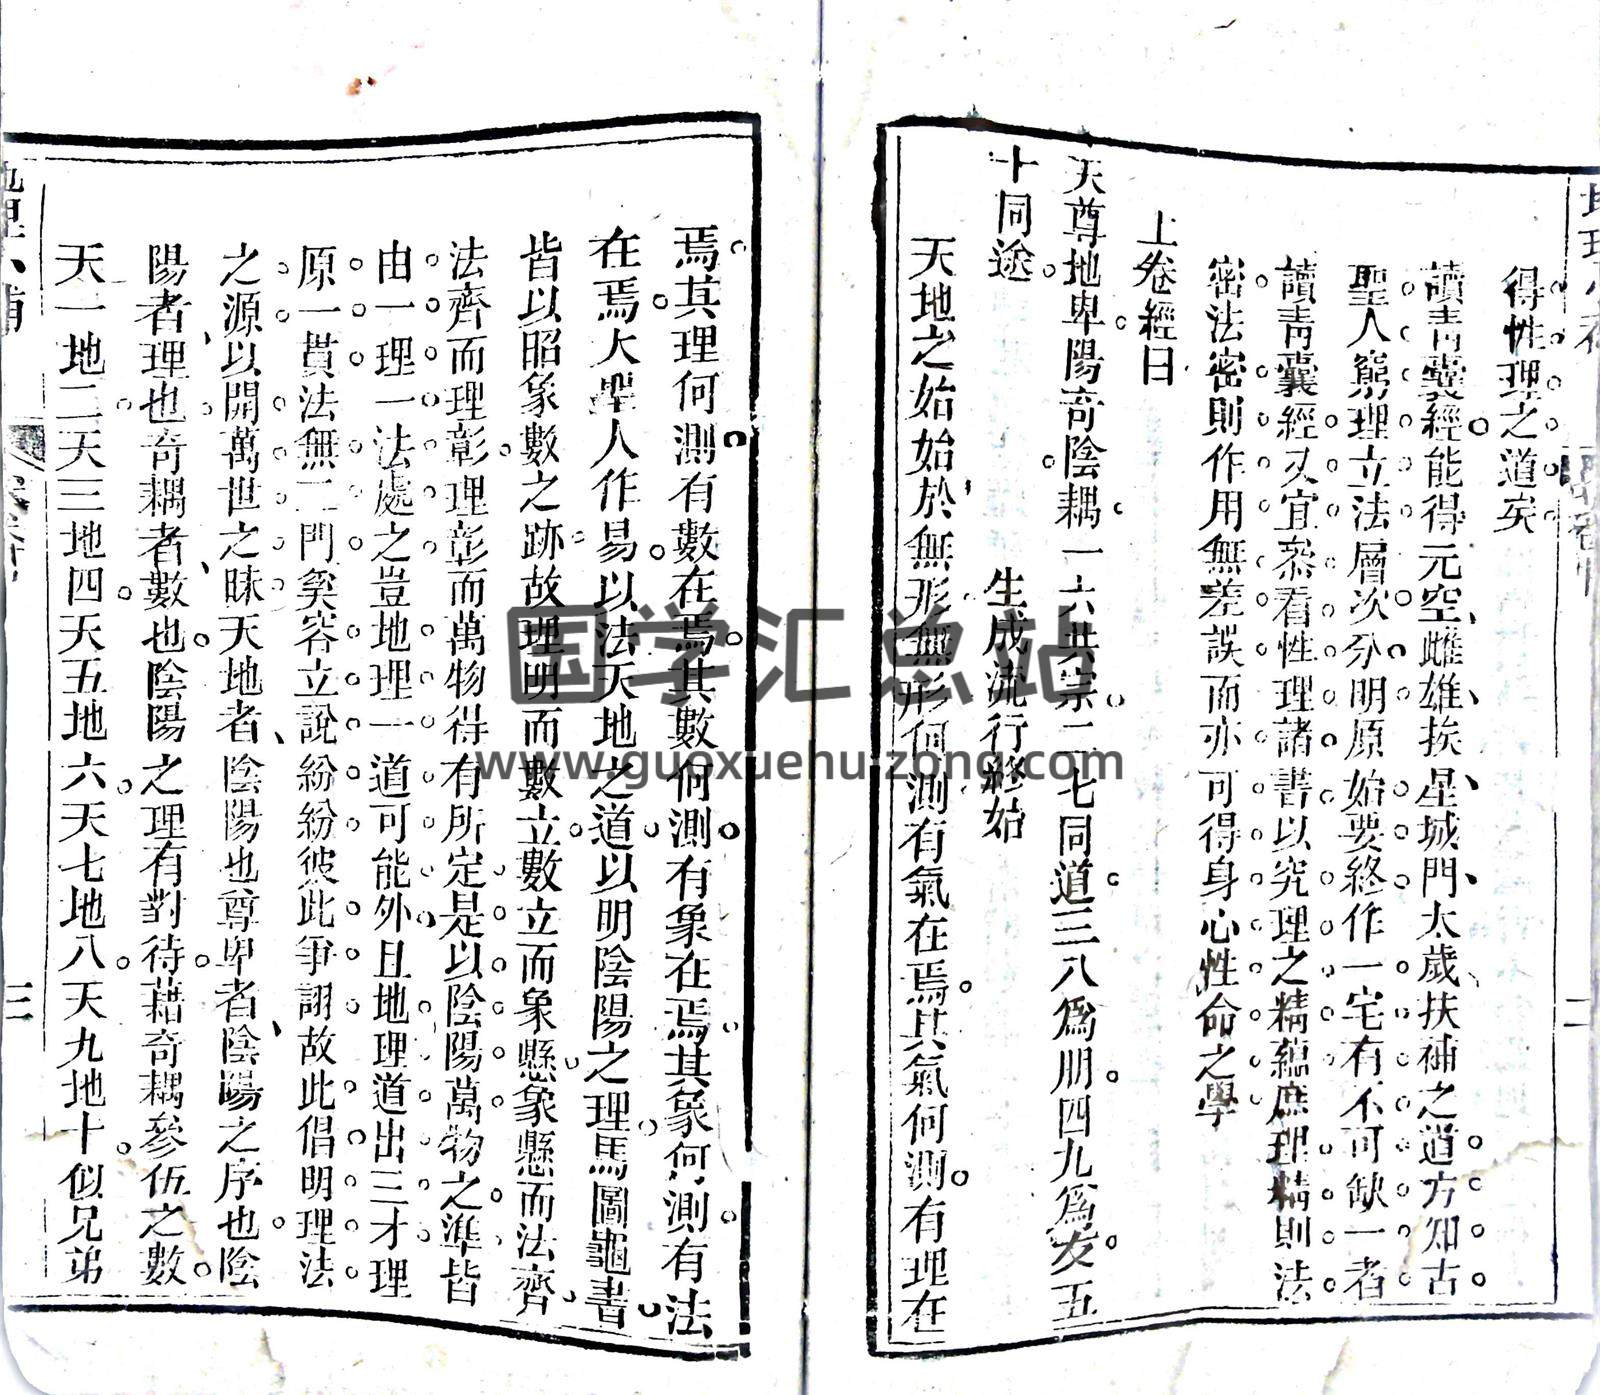 得性理之道矣
讀青囊經能得元空雌雄挨星城門太歲扶補之道方知古
聖人窮理立法層次分明原始要終作一宅有不可缺一者
讀青囊經又宜叅看性理諸書以究理之精蘊庶理精則法
密法密則作用無差誤而亦可得身心性命之學
上卷經曰
天尊地卑陽奇陰耦一六共宗二七同道三八爲朋四九爲友五
十同途 生成流行終始
天地之始始於無形無形何測有氣在焉其氣何測有理在
焉其理何測有數在焉其數何測有象在焉其象何測有法
在焉大聖人作易以法天地之道以明陰陽之理馬圖龜書
皆以昭象數之跡故理明而數立數立而象懸象懸而法齊
法齊而理彰理彰而萬物得有所定是以陰陽萬物之準皆
由一理一法處之豈地理一道可能外且地理道出三才理
原一貫法無二門奚容立說紛紛彼此爭詡故此倡明理法
之源以開萬世之昧天地者陰陽也尊卑者陰陽之序也陰
陽者理也奇耦者數也陰陽之理有對待藉奇耦參伍之數
天一地二天三地四天五地六天七地八天九地十似兄弟
二
三
国学汇总站
www.guoxuehuizong.com